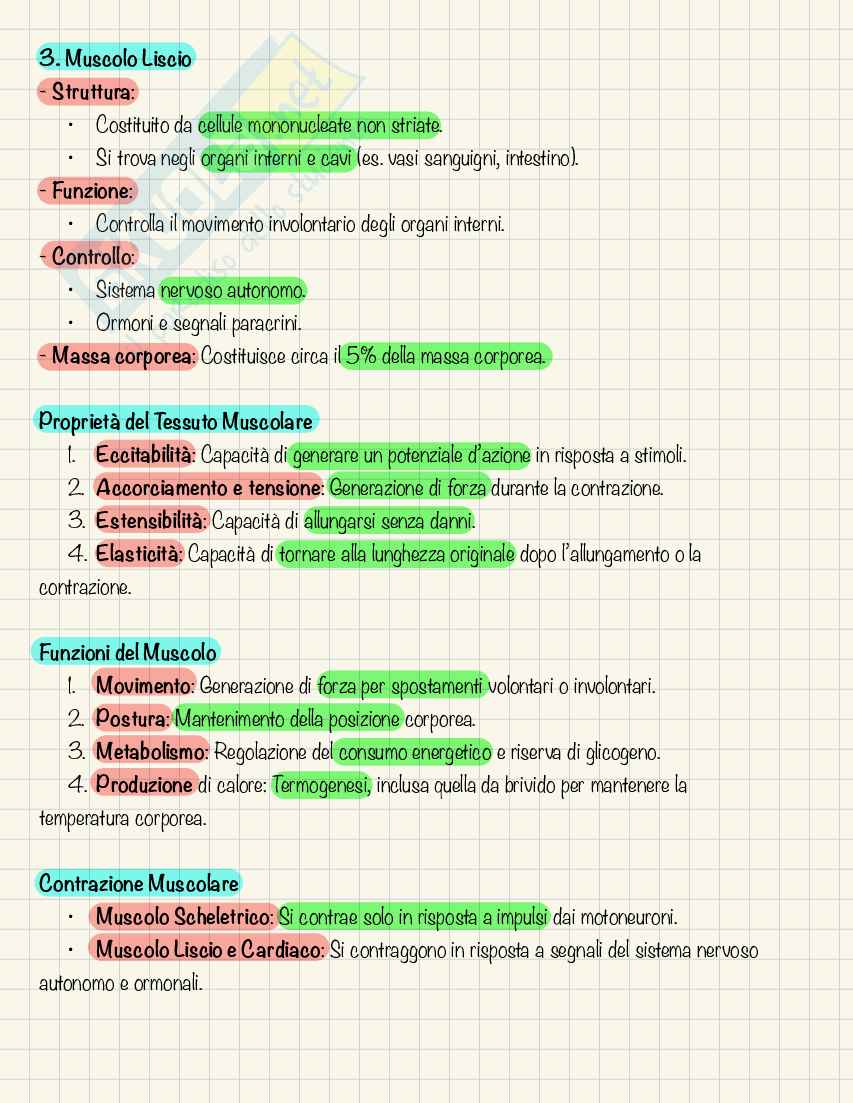 3. Muscolo Liscio
- Struttura:
• Costituito da cellule mononucleate non striate.
• Si trova negli organi interni e cavi (es. vasi sanguigni, intestino).
- Funzione:
• Controlla il movimento involontario degli organi interni.
- Controllo:
• Sistema nervoso autonomo.
• Ormoni e segnali paracrini.
- Massa corporea: Costituisce circa il 5% della massa corporea.
Proprietà del Tessuto Muscolare
1. Eccitabilità: Capacità di generare un potenziale d'azione in risposta a stimoli.
2. Accorciamento e tensione: Generazione di forza durante la contrazione.
3. Estensibilità: Capacità di allungarsi senza danni.
4. Elasticità: Capacità di tornare alla lunghezza originale dopo l'allungamento o la
contrazione.
Funzioni del Muscolo
1. Movimento: Generazione di forza per spostamenti volontari o involontari.
2. Postura: Mantenimento della posizione corporea.
3. Metabolismo: Regolazione del consumo energetico e riserva di glicogeno.
4. Produzione di calore: Termogenesi, inclusa quella da brivido per mantenere la
temperatura corporea.
Contrazione Muscolare
• Muscolo Scheletrico: Si contrae solo in risposta a impulsi dai motoneuroni.
• Muscolo Liscio e Cardiaco: Si contraggono in risposta a segnali del sistema nervoso
autonomo e ormonali.